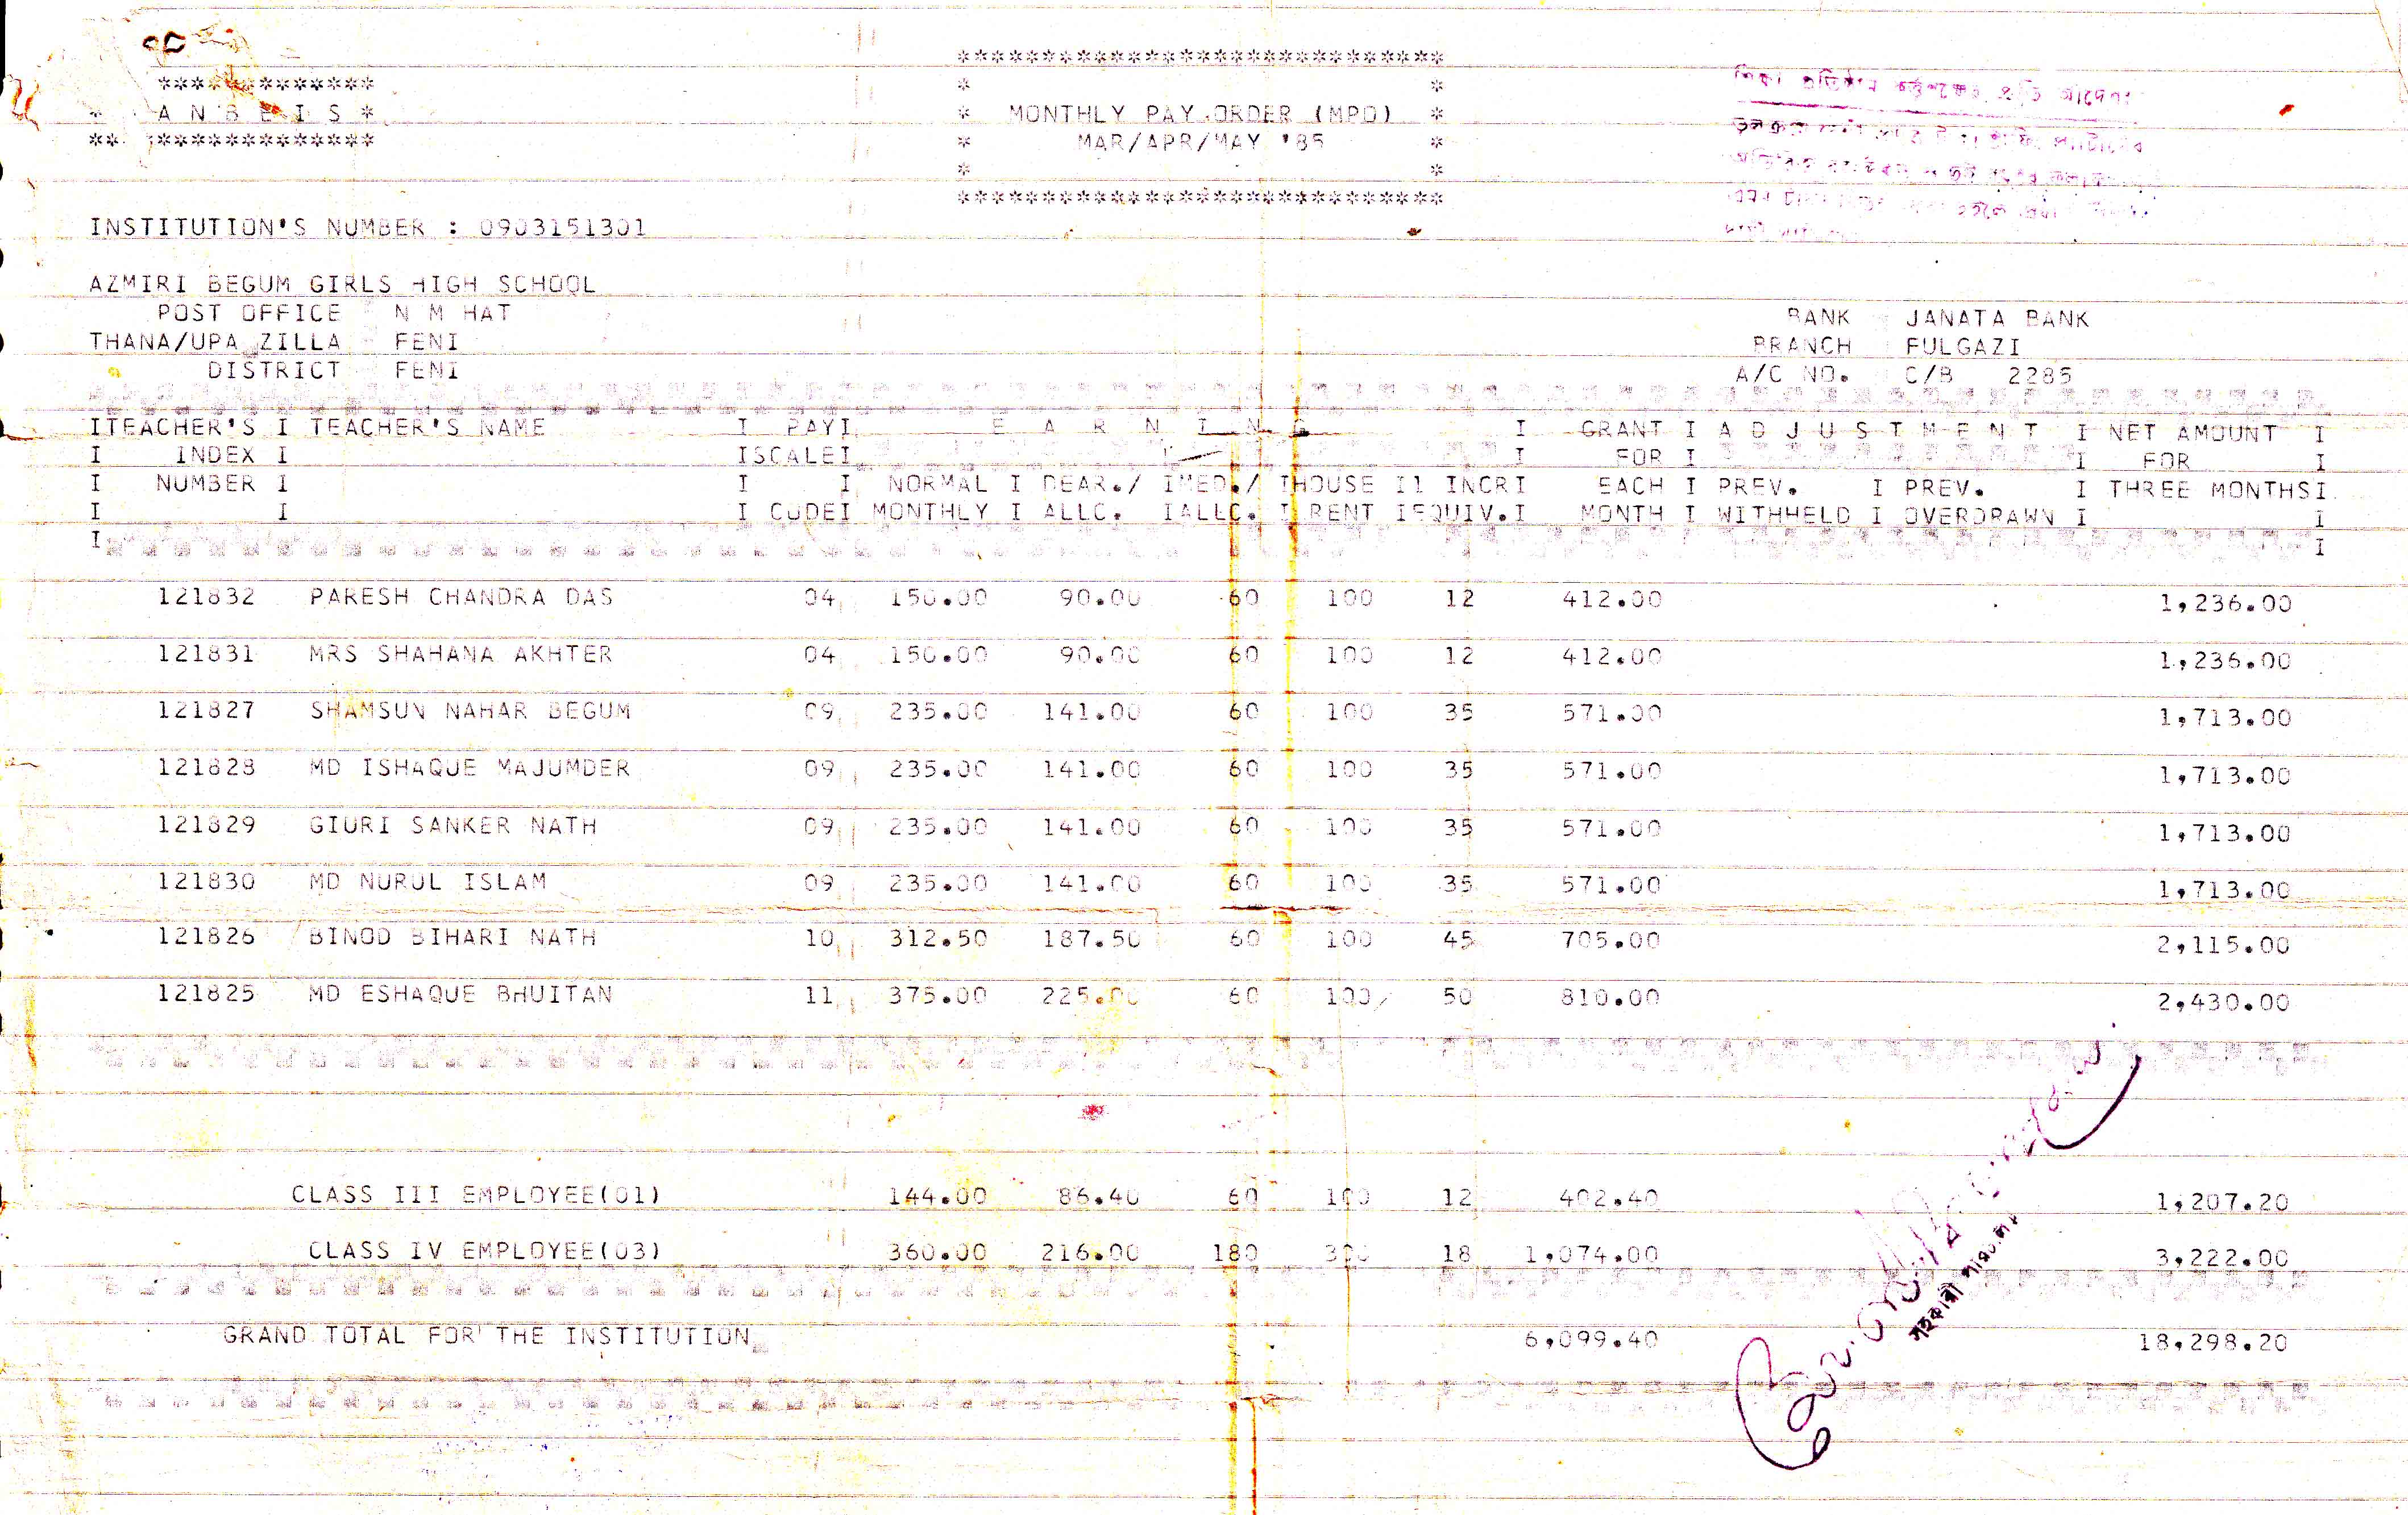 * A N B E I S *
MONTHLY PAY ORDER (MPO)
MAR/APR/MAY '85
INSTITUTION'S NUMBER : 0903151301
AZMIRI BEGUM GIRLS HIGH SCHOOL
POST OFFICE N M HAT
BANK JANATA BANK
THANA/UPA ZILLA FENI
BRANCH FULGAZI
DISTRICT FENI
A/C NO. C/B 2285
ITEACHER'S I TEACHER'S NAME I PAYI E A R N I N G I GRANT I A D J U S T M E N T I NET AMOUNT I
I INDEX I ISCALEI I FOR I I FOR I
I NUMBER I I I NORMAL I DEAR./ IMED./ IHOUSE I1 INCRI EACH I PREV. I PREV. I THREE MONTHSI
I I I CODEI MONTHLY I ALLC. IALLC. I RENT IEQUIV.I MONTH I WITHHELD I OVERDRAWN I I
I I
121832 PARESH CHANDRA DAS 04 150.00 90.00 60 100 12 412.00 1,236.00
121831 MRS SHAHANA AKHTER 04 150.00 90.00 60 100 12 412.00 1,236.00
121827 SHAMSUN NAHAR BEGUM 09 235.00 141.00 60 100 35 571.00 1,713.00
121828 MD ISHAQUE MAJUMDER 09 235.00 141.00 60 100 35 571.00 1,713.00
121829 GIURI SANKER NATH 09 235.00 141.00 60 100 35 571.00 1,713.00
121830 MD NURUL ISLAM 09 235.00 141.00 60 100 35 571.00 1,713.00
121826 BINOD BIHARI NATH 10 312.50 187.50 60 100 45 705.00 2,115.00
121825 MD ESHAQUE BHUITAN 11 375.00 225.00 60 100 50 810.00 2,430.00
CLASS III EMPLOYEE(01) 144.00 86.40 60 100 12 402.40 1,207.20
CLASS IV EMPLOYEE(03) 360.00 216.00 180 300 18 1,074.00 3,222.00
GRAND TOTAL FOR THE INSTITUTION 6,099.40 18,298.20